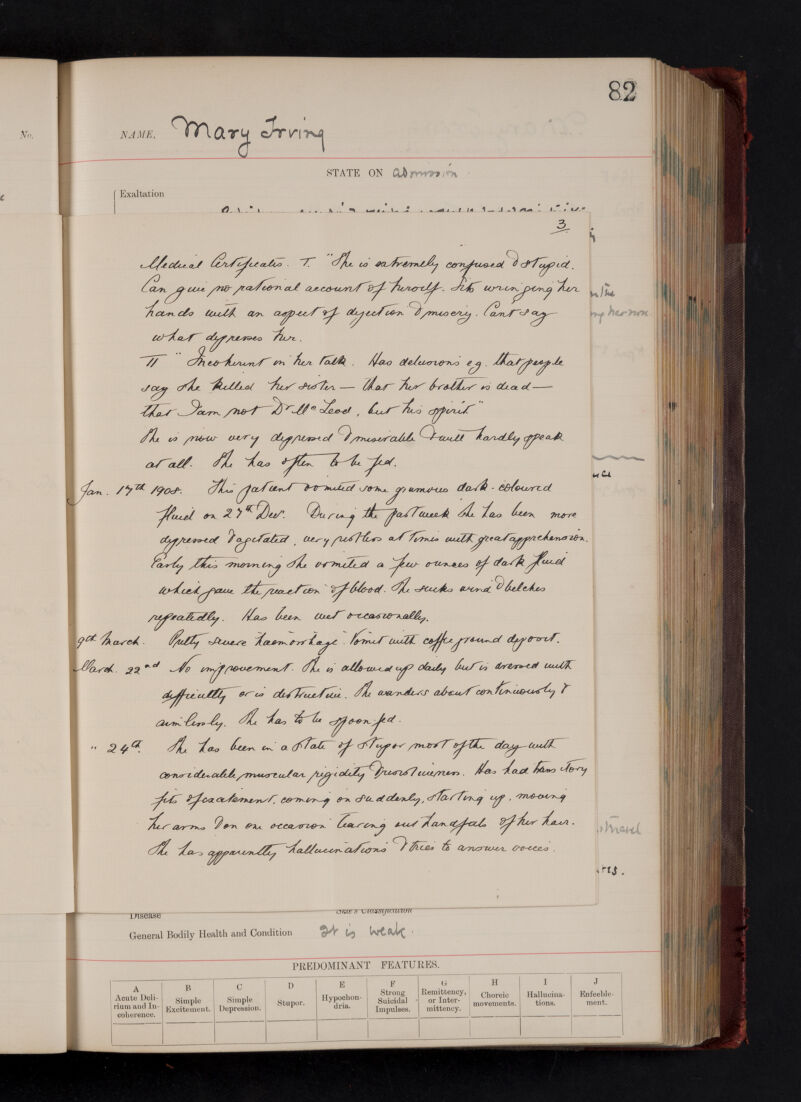 82
No.
NAME. Mary Irving
STATE ON Admission
Exaltation
3
Medical Certificates. I. "She is extremely confused & stupid.
Can give no rational account of herself. Sits wringing her
hands with an aspect of dejection & misery. Cant say
what depresses her.
II "Incoherent in her talk. Has delusions e.g. that people
say she killed her sister — that her brother is dead —
that I am not Dr McLeod, but his spirit"
She is now very depressed & miserable & will hardly speak
at all. She has often to be fed.
Jan. 17th 1908. This patient vomited some grumous dark-coloured
fluid on 27th Decr. During the past week she has been more
depressed & agitated, very restless at times with great apprehension.
Early this morning she vomited a few ounces of dark fluid
which gave the reaction of blood. She sucks wind & belches
repeatedly. Has been wet occasionally.
9th March. Pretty severe haemorrhage. Vomit with coffee ground deposit.
March. 22nd No improvement. She is allowed up daily but is dressed with
difficulty or is destructive. She wanders about continuously &
aimlessly. She has to be spoon fed.
" 24th. She has been in a state of stupor most of the day with
considerable muscular rigidity & resistiveness. Has had transitory
fits of excitement, coming on suddenly, starting up, moving
her arms & on one occasion tearing out handfuls of her hair.
She has apparently hallucinations & tries to answer voices.
Disease
Skae's Classification
General Bodily Health and Condition It is weak.
PREDOMINANT FEATURES.
A Acute Delirium and Incoherence.
B Simple Excitement.
C Simple Depression.
D Stupor.
E Hypochondria.
F Strong Suicidal Impulses.
G Remittency, or Intermittency.
H Choreic movements.
I Hallucinations.
J Enfeeblement.